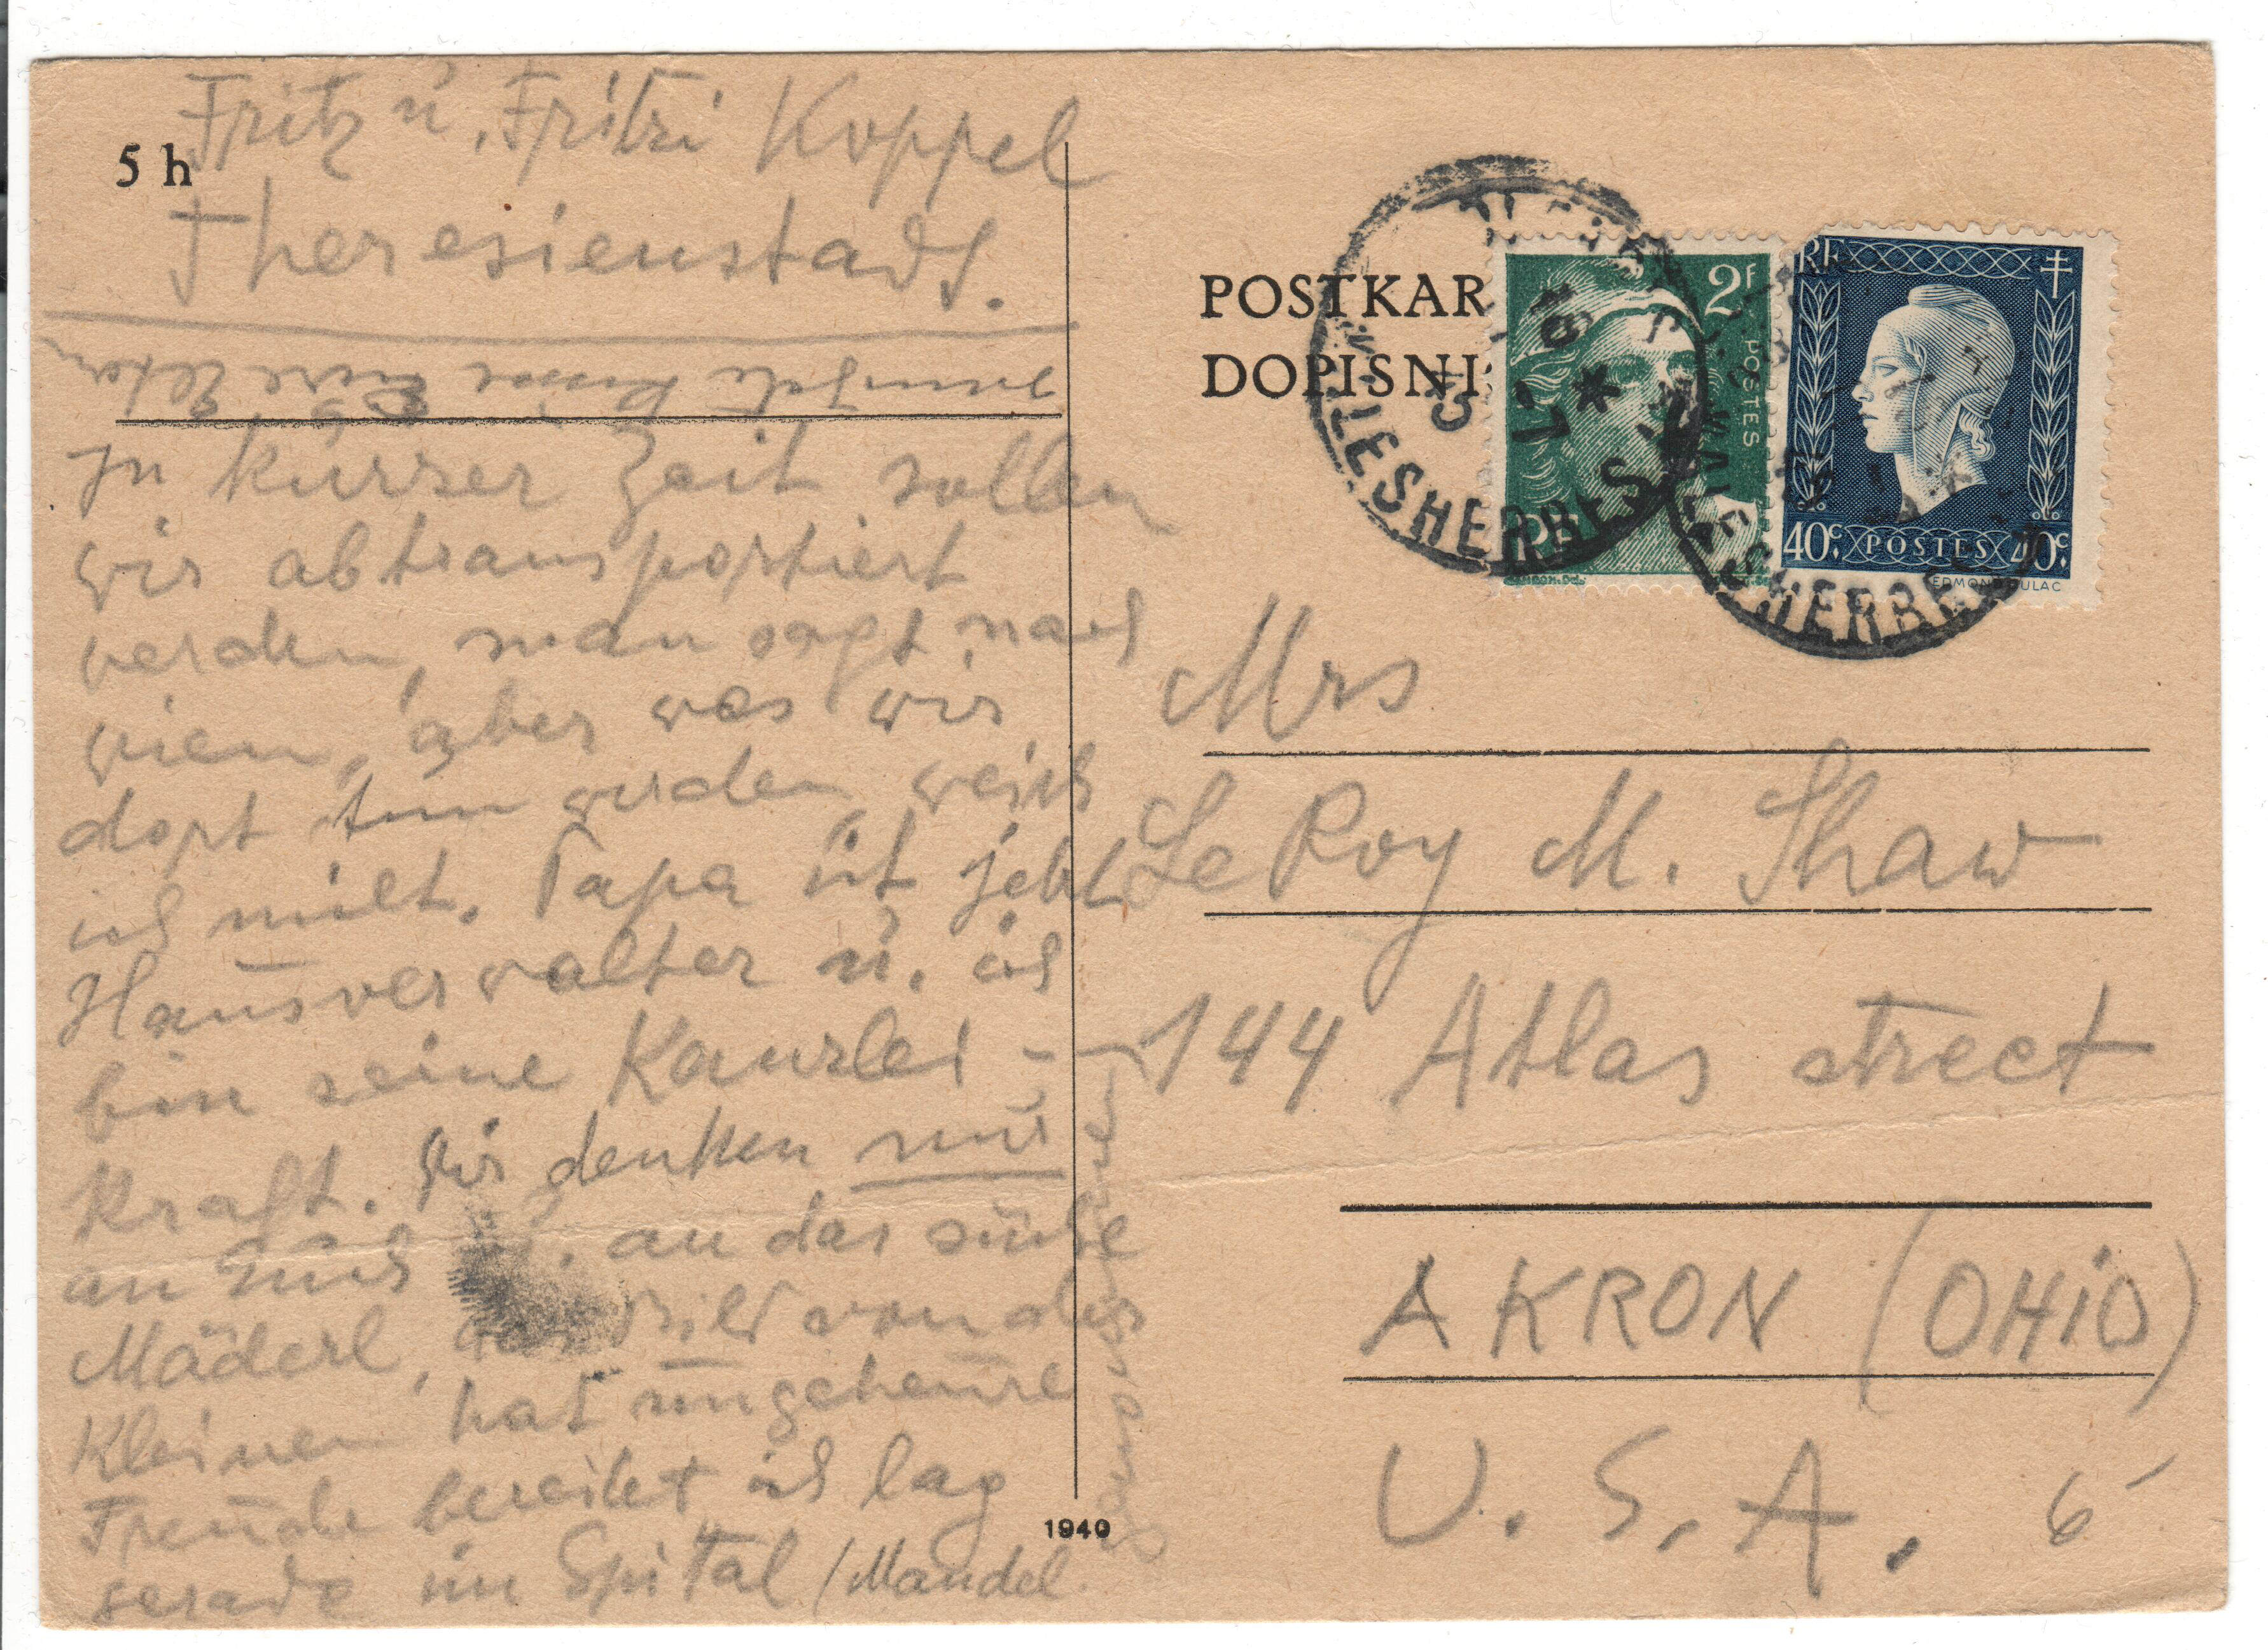 Fritz u. Fritzi Koppel
5 h
Theresienstadt.
Küsse Eure Eltern
In kurzer Zeit sollen
wir abtransportiert
werden, man sagt nach
Wien, aber was wir
dort tun werden, weiss
ich nicht. Papa ist jetzt
Hausverwalter u. ich
bin seine Kanzlei-
kraft. Wir denken nur
an Euch u. an das süße
Mäderl, das Bild von der
Kleinen hat ungeheure
Freude bereitet ich lag
gerade im Spital /Mandel
1940
POSTKAR
DOPISNI
MALESHERBES
18
7
45
MALESHERBES
2F
POSTES
RF
RF
40c. POSTES 40c.
EDMOND DULAC
Mrs
Le Roy M. Shaw
144 Atlas street
AKRON (OHiO)
U. S. A. 6